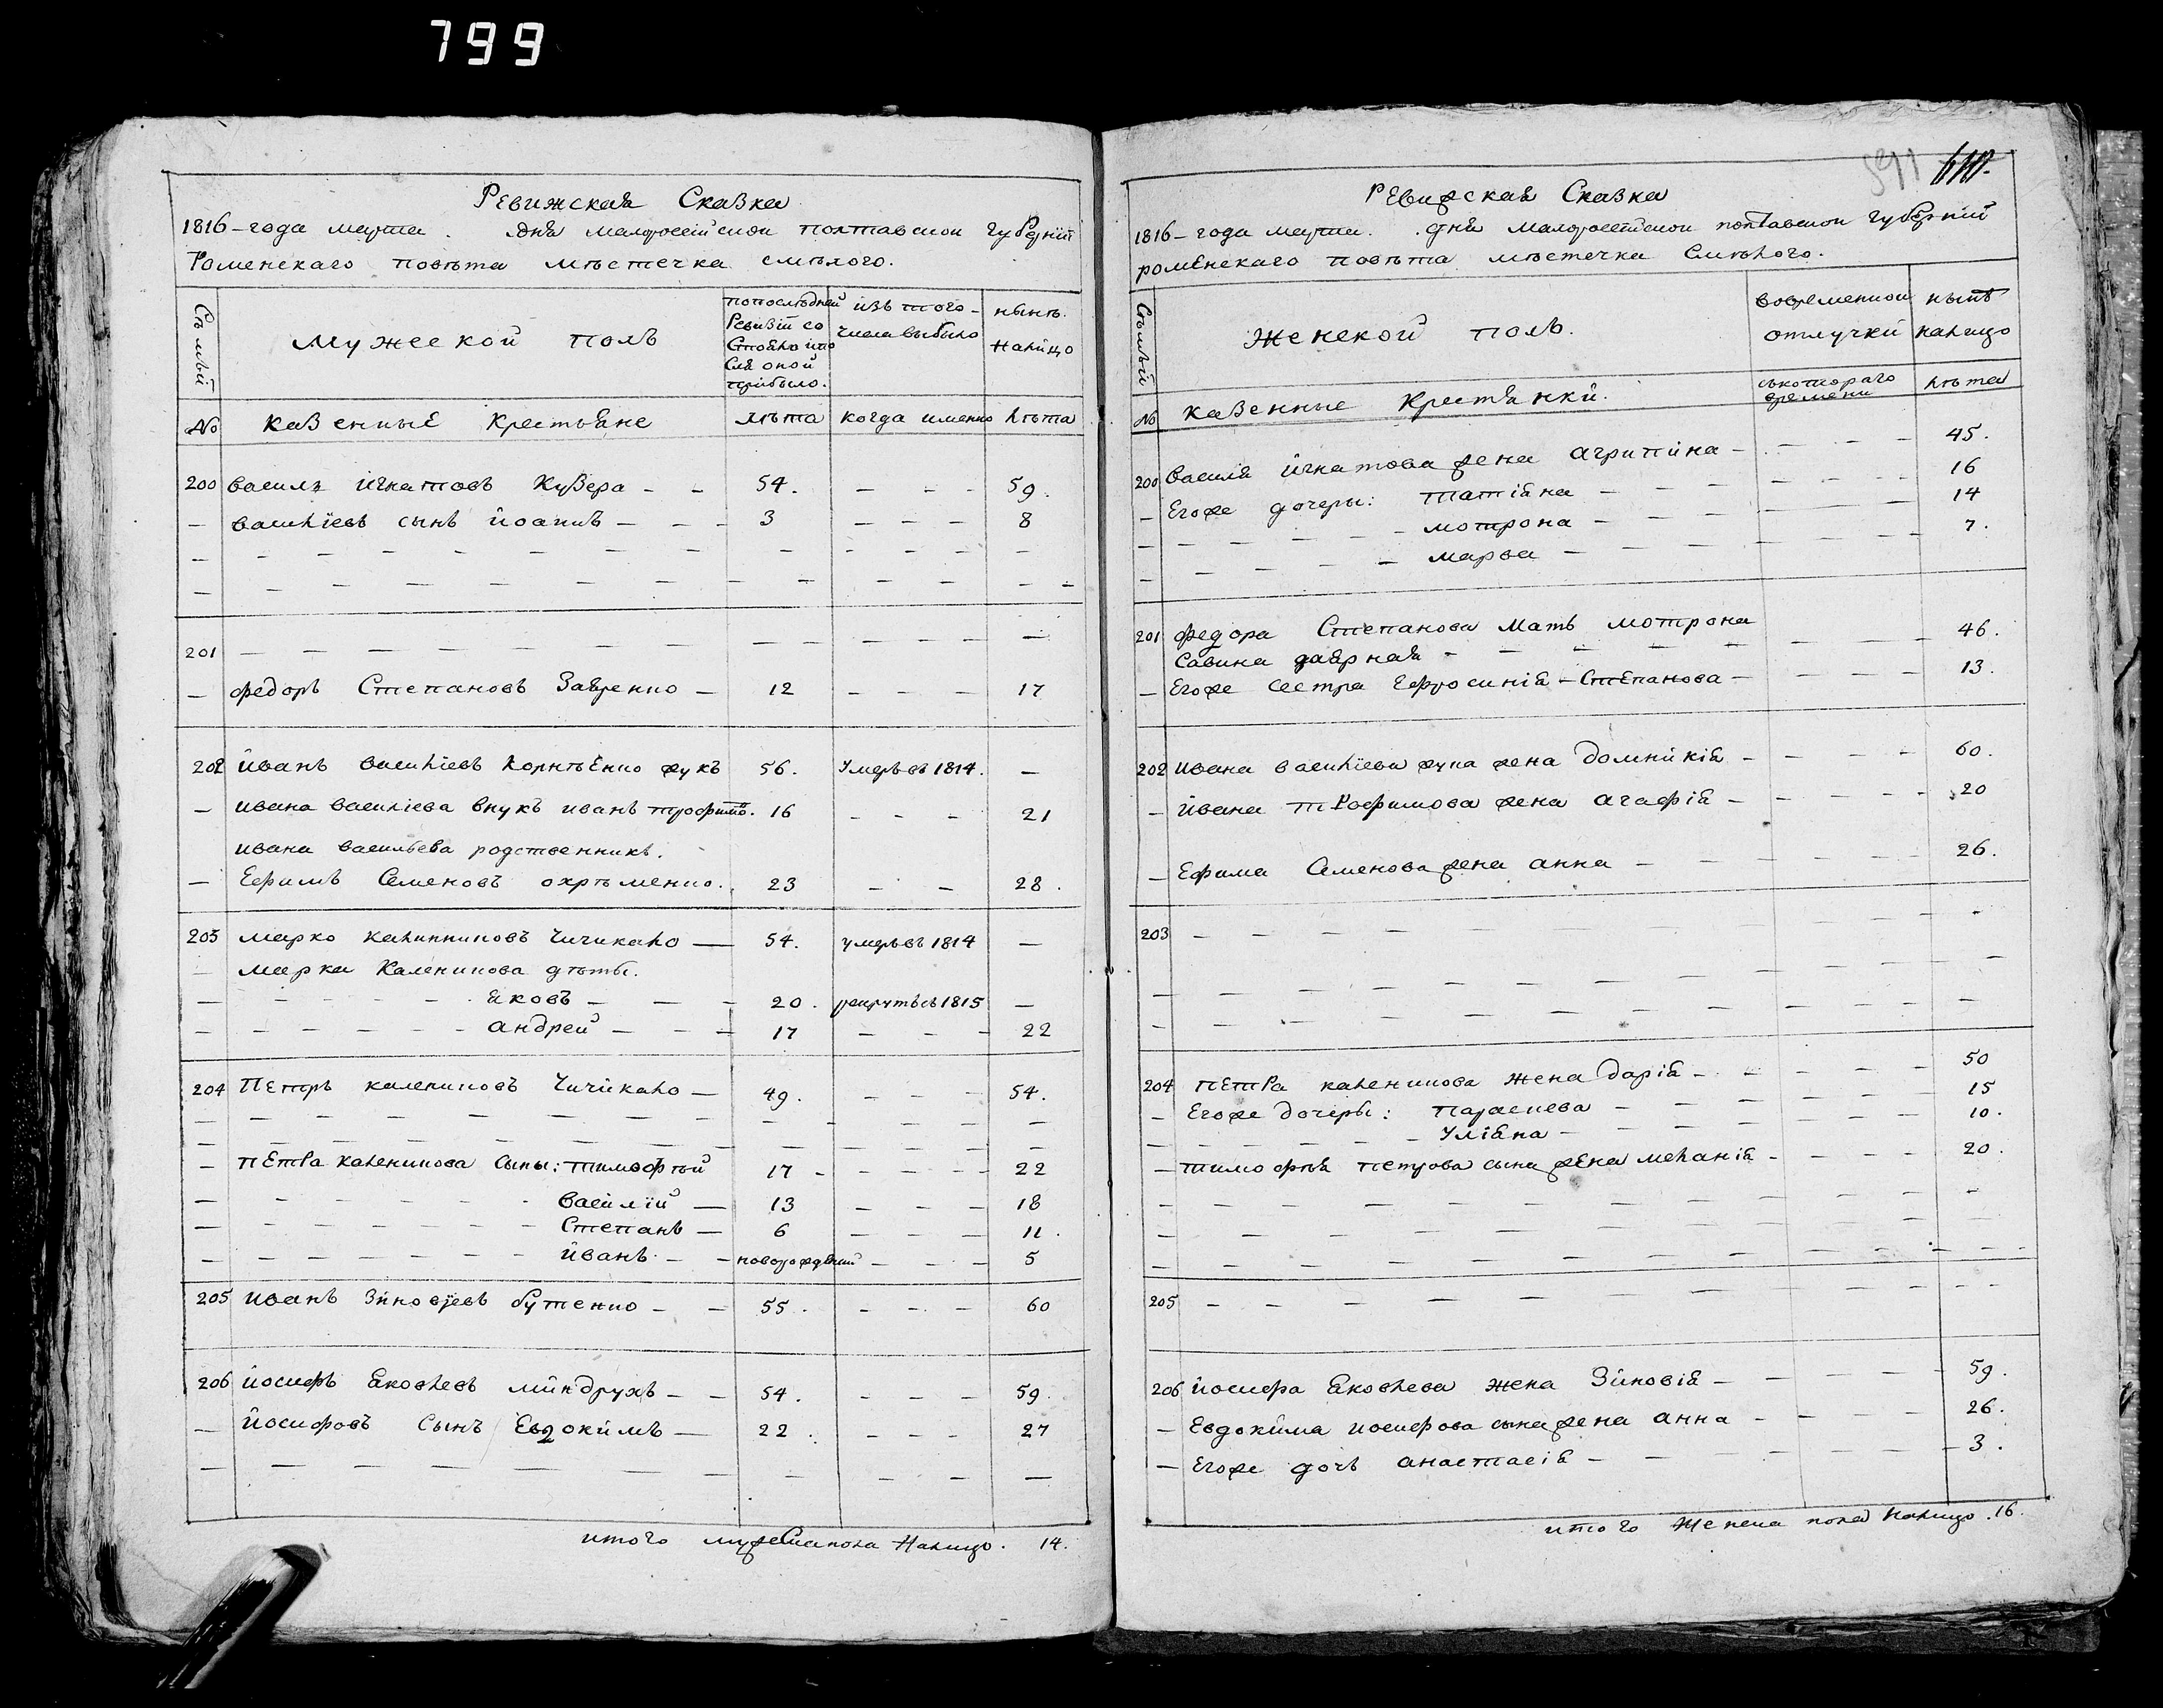 799
Ревижская Сказка
1816-года марта . дня малороссійской полтавской губерніи
Роменскаго повѣта мѣстечка смѣлого.
Семьи
Мужеской полъ
попослѣдней Ревизіи состояло и после оной прибыло.
изъ того числа выбыло
нынѣ налицо
№ казенные Крестьяне
лѣта
когда именно
лѣта
200 Василь Игнатовъ Кузера - - 54. - - - 59.
— василіевъ сынъ иоаннъ — - - 3 — — — 8
201 — — — — — —
— федоръ Степановъ Завренко — 12 — — — 17
202 иванъ василіевъ Корнѣенко жукъ 56. Умеръ въ 1814. —
— ивана василіева внукъ иванъ трофимо. 16 - - - 21
ивана васильева родственникъ.
— Ефимъ Семеновъ охрѣменко. 23 — — 28.
203 марко калинниковъ Чичикало — 54. умеръ въ 1814 —
марка Каленикова дѣты.
яковъ — — 20. рекрутъ въ 1815 —
андрей — — 17 — — — 22
204 Петръ калениковъ Чичикало — 49. - - - 54.
— Петра каленикова сыны: тимофѣй 17 - - - - 22
василій — 13 — — — 18
Степанъ — 6 — — — 11.
иванъ - - новорожденый — - - 5
205 иванъ Зиновіевъ бутенко - - 55. - - - 60
206 иосифъ яковлевъ миндрухъ - - 54. - - - 59.
— иосифовъ Сынъ Евдокимъ — 22. - - - 27
итого мужеска пола Налицо. 14.
610.
Ревизская Сказка
1816-года марта. . дня малороссійской полтавской губерніи
роменскаго повѣта мѣстечка Смѣлого.
Семьи
Женской полъ.
вовременной отлучки
нынѣ налицо
№ казенные Крестянки.
скотораго времени
лѣта
200 Василя игнатова жена агрипина - - - - 45.
— Егоже дочеры: татіяна - - - 16
мотрона - - - 14
марва - - - 7.
201 федора Степанова мать мотрона
Савина - - - 46.
— Егоже сестра Ефросинія - Степанова - - - 13.
202 ивана василіева жука жена домникія - - - - 60.
— ивана трофимова жена агафія - - - - 20
— Ефима Семенова жена анна - - - - 26.
203 - - - -
204 Петра каленикова жена дарія - - - - 50
— Егоже дочеры: параскева - - - 15
Уліяна - - - 10.
— тимофѣя петрова сына жена меланія - - - - 20.
205 - - - -
206 иосифа яковлева жена Зиновія - - - - 59.
— Евдокима иосифова сына жена анна - - - 26.
— Егоже дочь анастасія - - - - 3.
итого женска пола налицо. 16.